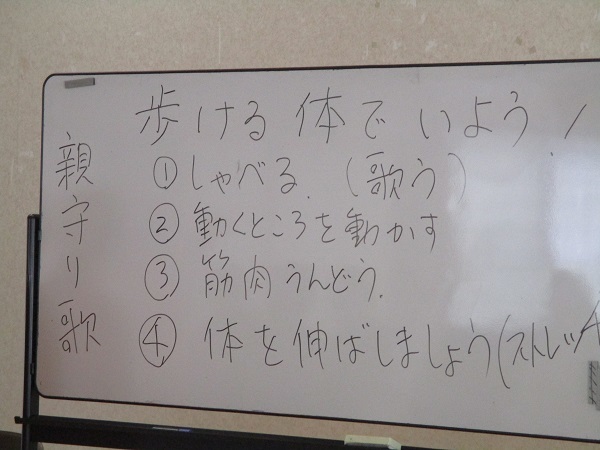 歩ける体でいよう!
親守り歌
①しゃべる.(歌う)
②動くところを動かす
③筋肉うんどう.
④体を伸ばしましょう(ストレッチ